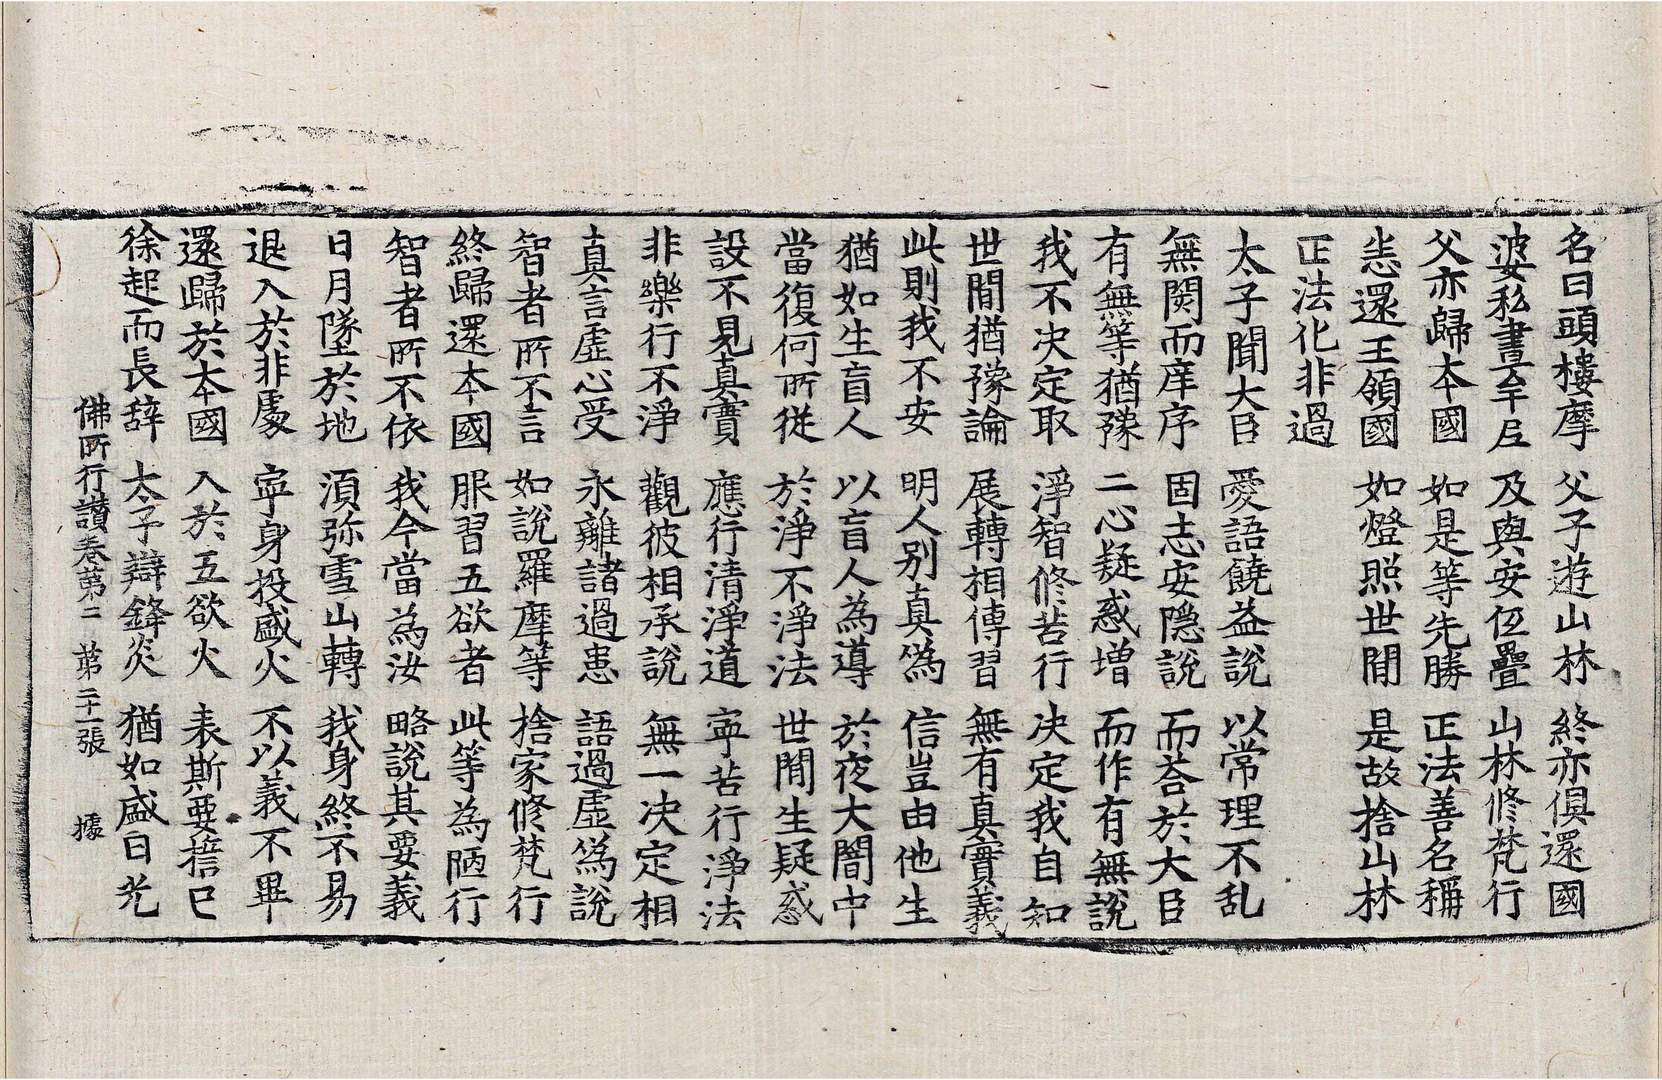 名曰頭樓摩 父子遊山林 終亦俱還國
婆私晝牟尼 及與安伍疊 山林修梵行
父亦歸本國 如是等先勝 正法善名稱
悉還王領國 如燈照世間 是故捨山林
正法化非過
太子聞大臣 愛語饒益說 以常理不乱
無閡而庠序 固志安隱說 而荅於大臣
有無等猶豫 二心疑惑增 而作有無說
我不决定取 淨智修苦行 决定我自知
世間猶豫論 展轉相傳習 無有真實義
此則我不安 明人別真僞 信豈由他生
猶如生盲人 以盲人為導 於夜大闇中
當復何所從 於淨不淨法 世間生疑惑
設不見真實 應行清淨道 寧苦行淨法
非樂行不淨 觀彼相承說 無一决定相
真言虛心受 永離諸過患 語過虛僞說
智者所不言 如說羅摩等 捨家修梵行
終歸還本國 服習五欲者 此等為陋行
智者所不依 我今當為汝 略說其要義
日月墜於地 須弥雪山轉 我身終不易
退入於非處 寧身投盛火 不以義不畢
還歸於本國 入於五欲火 表斯要誓已
徐起而長辞 太子辯鋒炎 猶如盛日光
佛所行讚卷第二 第二十一張 據